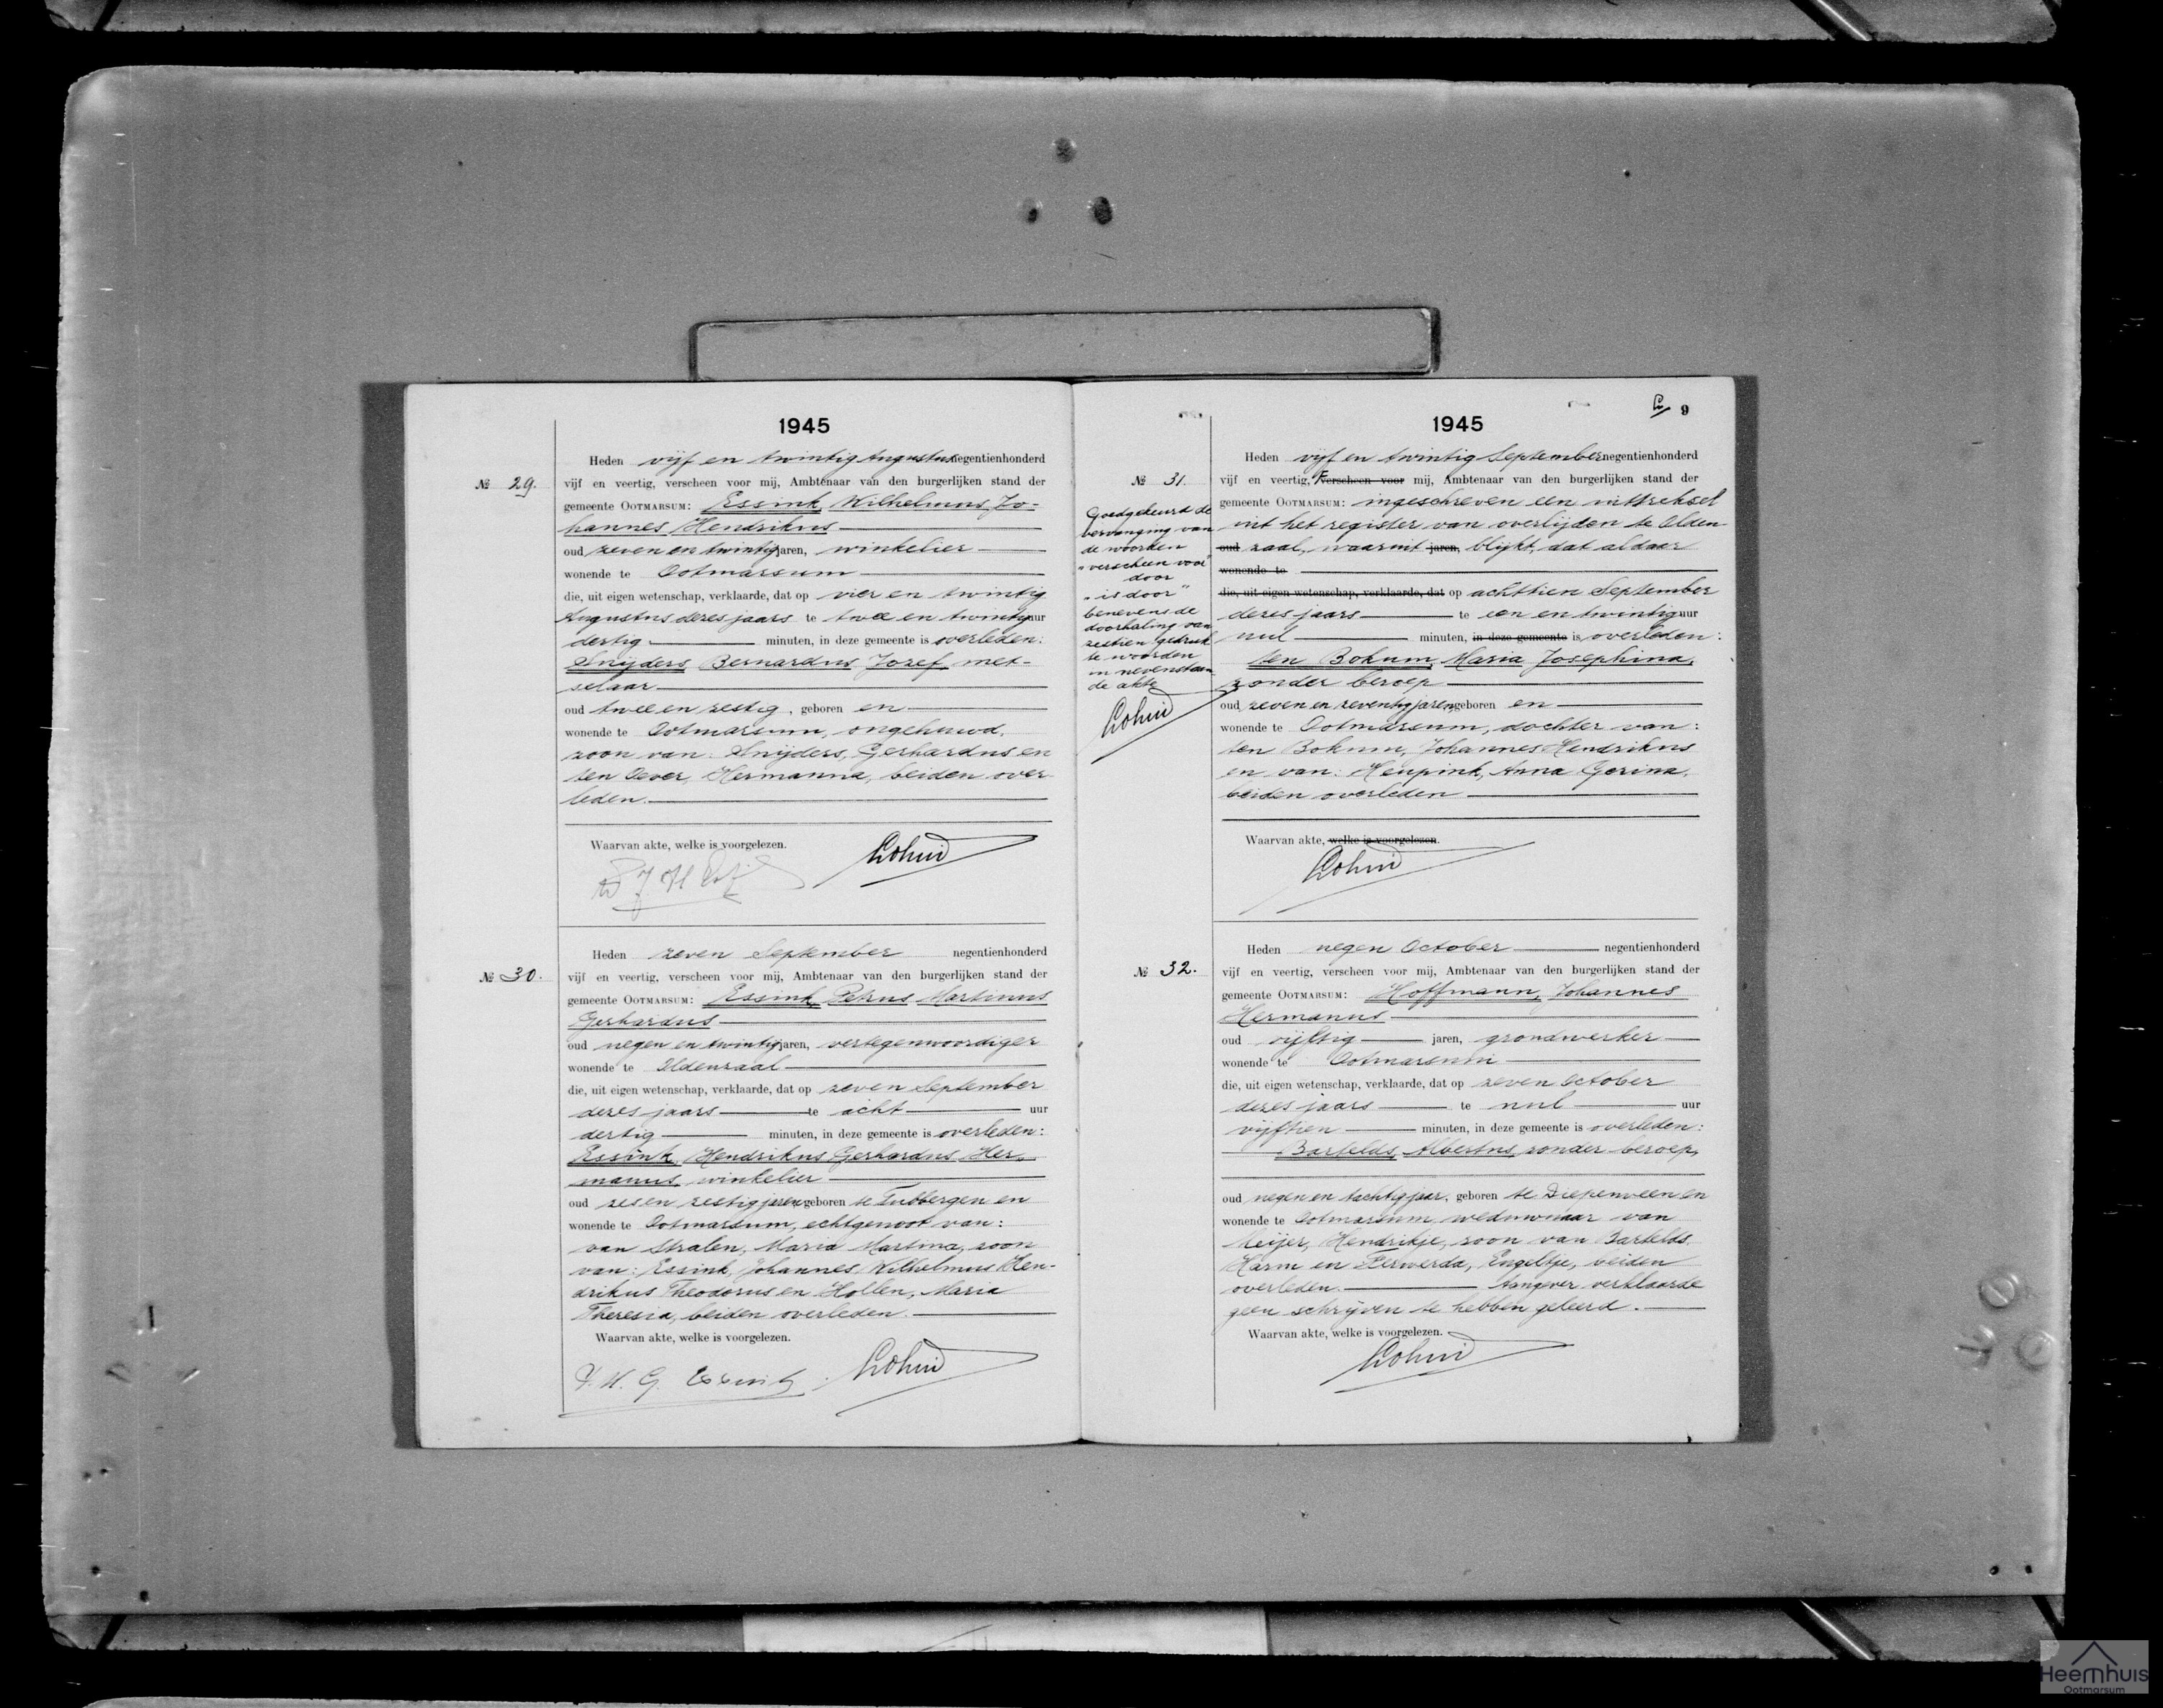 1945
Heden vijf en twintig Augustus negentienhonderd
№ 29.
vijf en veertig, verscheen voor mij, Ambtenaar van den burgerlijken stand der
gemeente OOTMARSUM: Essink, Wilhelmus Jo-
hannes Hendrikus
oud zeven en twintig jaren, winkelier
wonende te Ootmarsum
die, uit eigen wetenschap, verklaarde, dat op vier en twintig
Augustus dezes jaars te twee en twintig uur
dertig minuten, in deze gemeente is overleden:
Snijders Bernardus Jozef, met-
selaar
oud twee en zestig, geboren en
wonende te Ootmarsum, ongehuwd,
zoon van: Snijders, Gerhardus en
ten Oever, Hermanna, beiden over-
leden.
Waarvan akte, welke is voorgelezen.
Heden zeven September negentienhonderd
№ 30.
vijf en veertig, verscheen voor mij, Ambtenaar van den burgerlijken stand der
gemeente OOTMARSUM: Essink, Petrus Martinus
Gerhardus
oud negen en twintig jaren, vertegenwoordiger
wonende te Oldenzaal
die, uit eigen wetenschap, verklaarde, dat op zeven September
dezes jaars te acht uur
dertig minuten, in deze gemeente is overleden:
Essink, Hendrikus Gerhardus Her-
manus, winkelier
oud zes en zestig jaren, geboren te Tubbergen en
wonende te Ootmarsum, echtgenoot van:
van Stralen, Maria Martina, zoon
van: Essink, Johannes Wilhelmus Hen-
drikus Theodorus en Hollen, Maria
Theresia, beiden overleden.
Waarvan akte, welke is voorgelezen.
9
1945
Heden vijf en twintig September negentienhonderd
№ 31.
vijf en veertig, verscheen voor mij, Ambtenaar van den burgerlijken stand der
gemeente OOTMARSUM: ingeschreven een uittreksel
uit het register van overlijden te Olden-
oud zaal, waaruit jaren, blijkt, dat aldaar
wonende te
die, uit eigen wetenschap, verklaarde, dat op achttien September
dezes jaars te een en twintig uur
nul minuten, in deze gemeente is overleden:
ten Bokum, Maria Josephina,
zonder beroep
oud zeven en zeventig jaren, geboren en
wonende te Ootmarsum, dochter van:
ten Bokum, Johannes Hendrikus
en van: Heupink, Anna Gerina,
beiden overleden
Goedgekeurd de
vervanging van
de woorden
"verscheen voor"
door
"is door"
benevens de
doorhaling van
zestien gedruk-
te woorden
in nevenstaan-
de akte
Waarvan akte, welke is voorgelezen.
Heden negen October negentienhonderd
№ 32.
vijf en veertig, verscheen voor mij, Ambtenaar van den burgerlijken stand der
gemeente OOTMARSUM: Hoffmann, Johannes
Hermanus
oud vijftig jaren, grondwerker
wonende te Ootmarsum
die, uit eigen wetenschap, verklaarde, dat op zeven October
dezes jaars te nul uur
vijftien minuten, in deze gemeente is overleden:
Bartelds, Albertus, zonder beroep,
oud negen en tachtig jaar, geboren te Diepenveen en
wonende te Ootmarsum, weduwnaar van
Meijer, Hendrikje, zoon van Bartelds,
Harm en Ferwerda, Engeltje, beiden
overleden. Aangever verklaarde
geen schrijven te hebben geleerd.
Waarvan akte, welke is voorgelezen.
Heemhuis
Ootmarsum